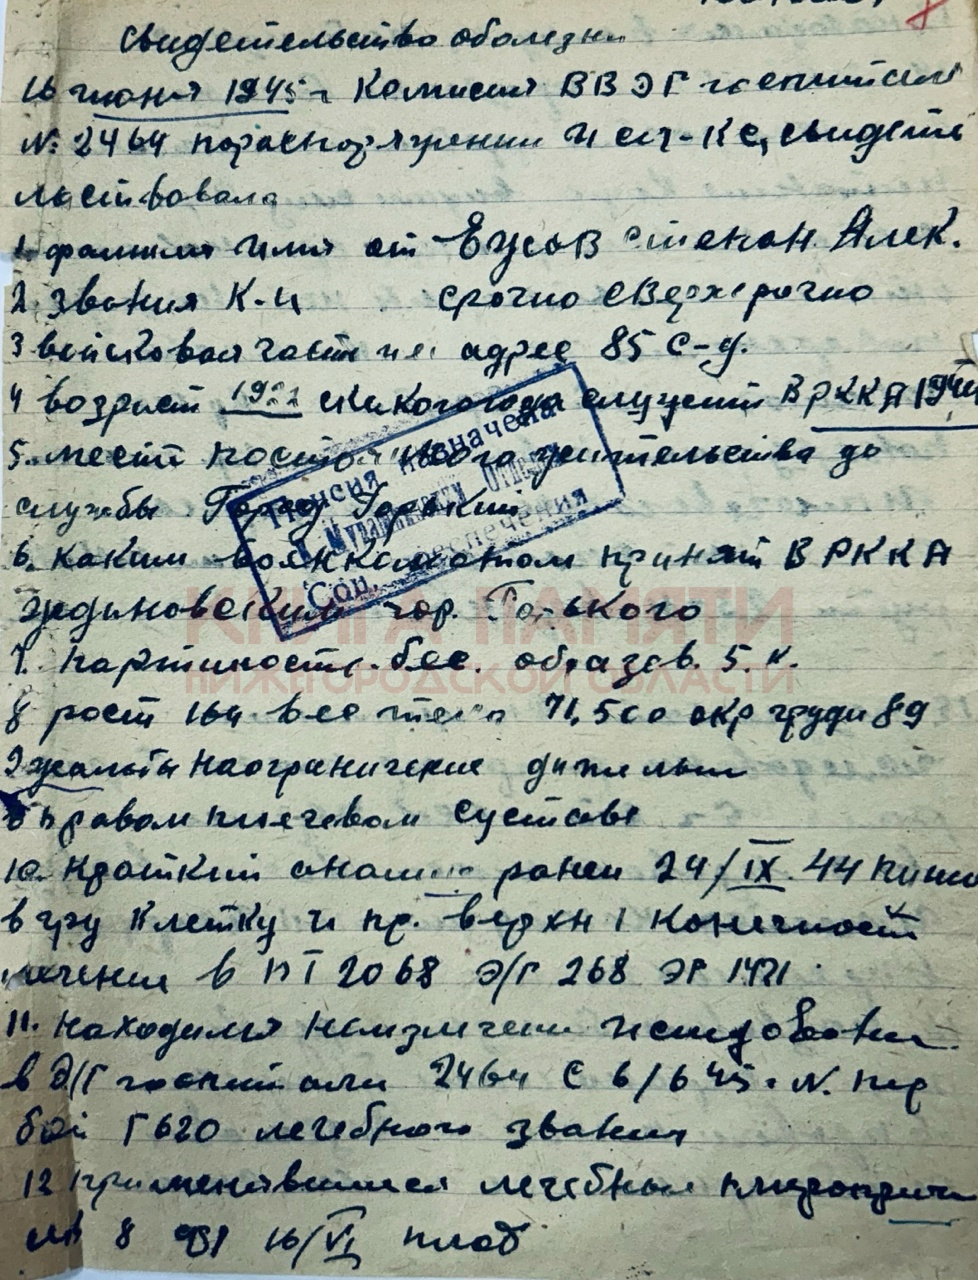 свидетельство оболезни
16 июня 1945 г Комисия ВВЭГ госпиталя
№ 2464 нораспоряжении И свидете
льствовала
1. фамилия имя от Еусов степан Алек.
2. звания К-ц срочно сверхсрочно
3 войсковая часть адрес 85 С-д.
4 возраст 1922 скакогогода служит В РККА 1941
5. место постоянного жительства до
службы Город Горький
6. каким военкоматом принят В РККА
ждановским гор. Горького
7. партиность. бес. образов. 5 к.
8 рост 164 вес тела 71,500 окр груди 89
9 жалобы наограничение
В правом плечевом суставе
10. краткий ранен 24/IX 44
в гру клетку и пр. верхн конечност
лечение в ПГ 2068 Э/Г 268 ЭГ 1421
11. находился наизлечении
в Э/Г госпитали 2464 с 6/6 45.
лечебного звания
12 применявшиеся лечебные
16/VI
Пенсия назначена
Отделе
Соц. обеспечения
КНИГА ПАМЯТИ
НИЖЕГОРОДСКОЙ ОБЛАСТИ